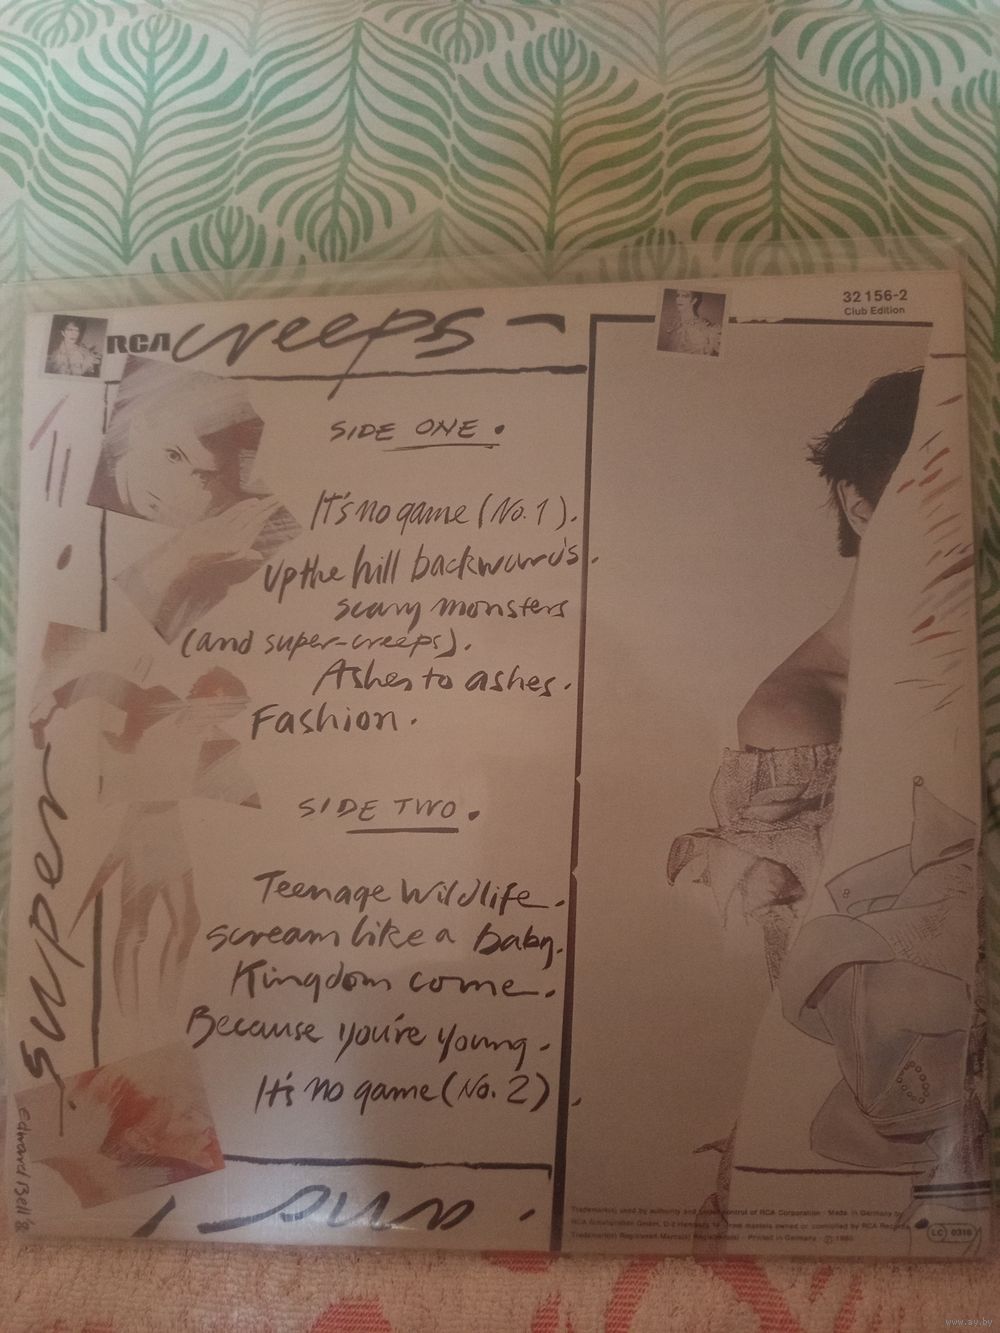 32 156-2
Club Edition
RCA creeps -
SIDE ONE.
It's no game (No. 1).
up the hill backwards.
scary monsters
(and super-creeps).
Ashes to ashes.
Fashion.
SIDE TWO.
Teenage Wildlife.
scream like a baby.
Kingdom come.
Because you're young.
It's no game (No. 2).
super
and
Edward Bell
Trademark(s) used by authority and under control of RCA Corporation · Made in Germany by
RCA Schallplatten GmbH, D-2 Hamburg
masters owned or controlled by RCA Records
Printed in Germany · Ⓟ 1980
LC 0316
www.ay.by